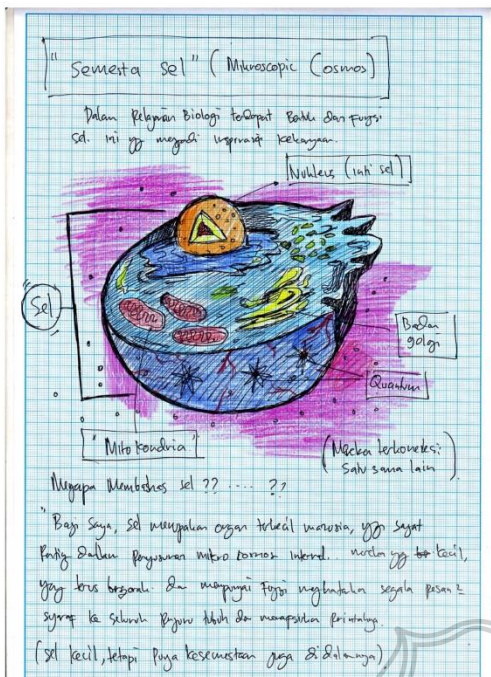 "Semesta sel" (Mikroscopic Cosmos)
Dalam Pelajaran Biologi terdapat Bentuk dan Fungsi
sel. ini yg menjadi inspirasi kekaryaan.
Nukleus (inti sel)
Sel
Badan golgi
Quantum
"Mitokondria"
(Mereka terkoneksi
satu sama lain)
Mengapa Membahas sel ?? .... ??
"Bagi Saya, sel merupakan organ terkecil manusia, yg sangat
Penting dalam Penyusunan mikro kosmos internal. mereka yg kecil,
yang terus bergerak dan mempunyai Fungsi menghantarkan segala pesan2
syaraf ke seluruh tubuh dan
(sel kecil, tetapi Punya kesemestaan juga di dalamnya)